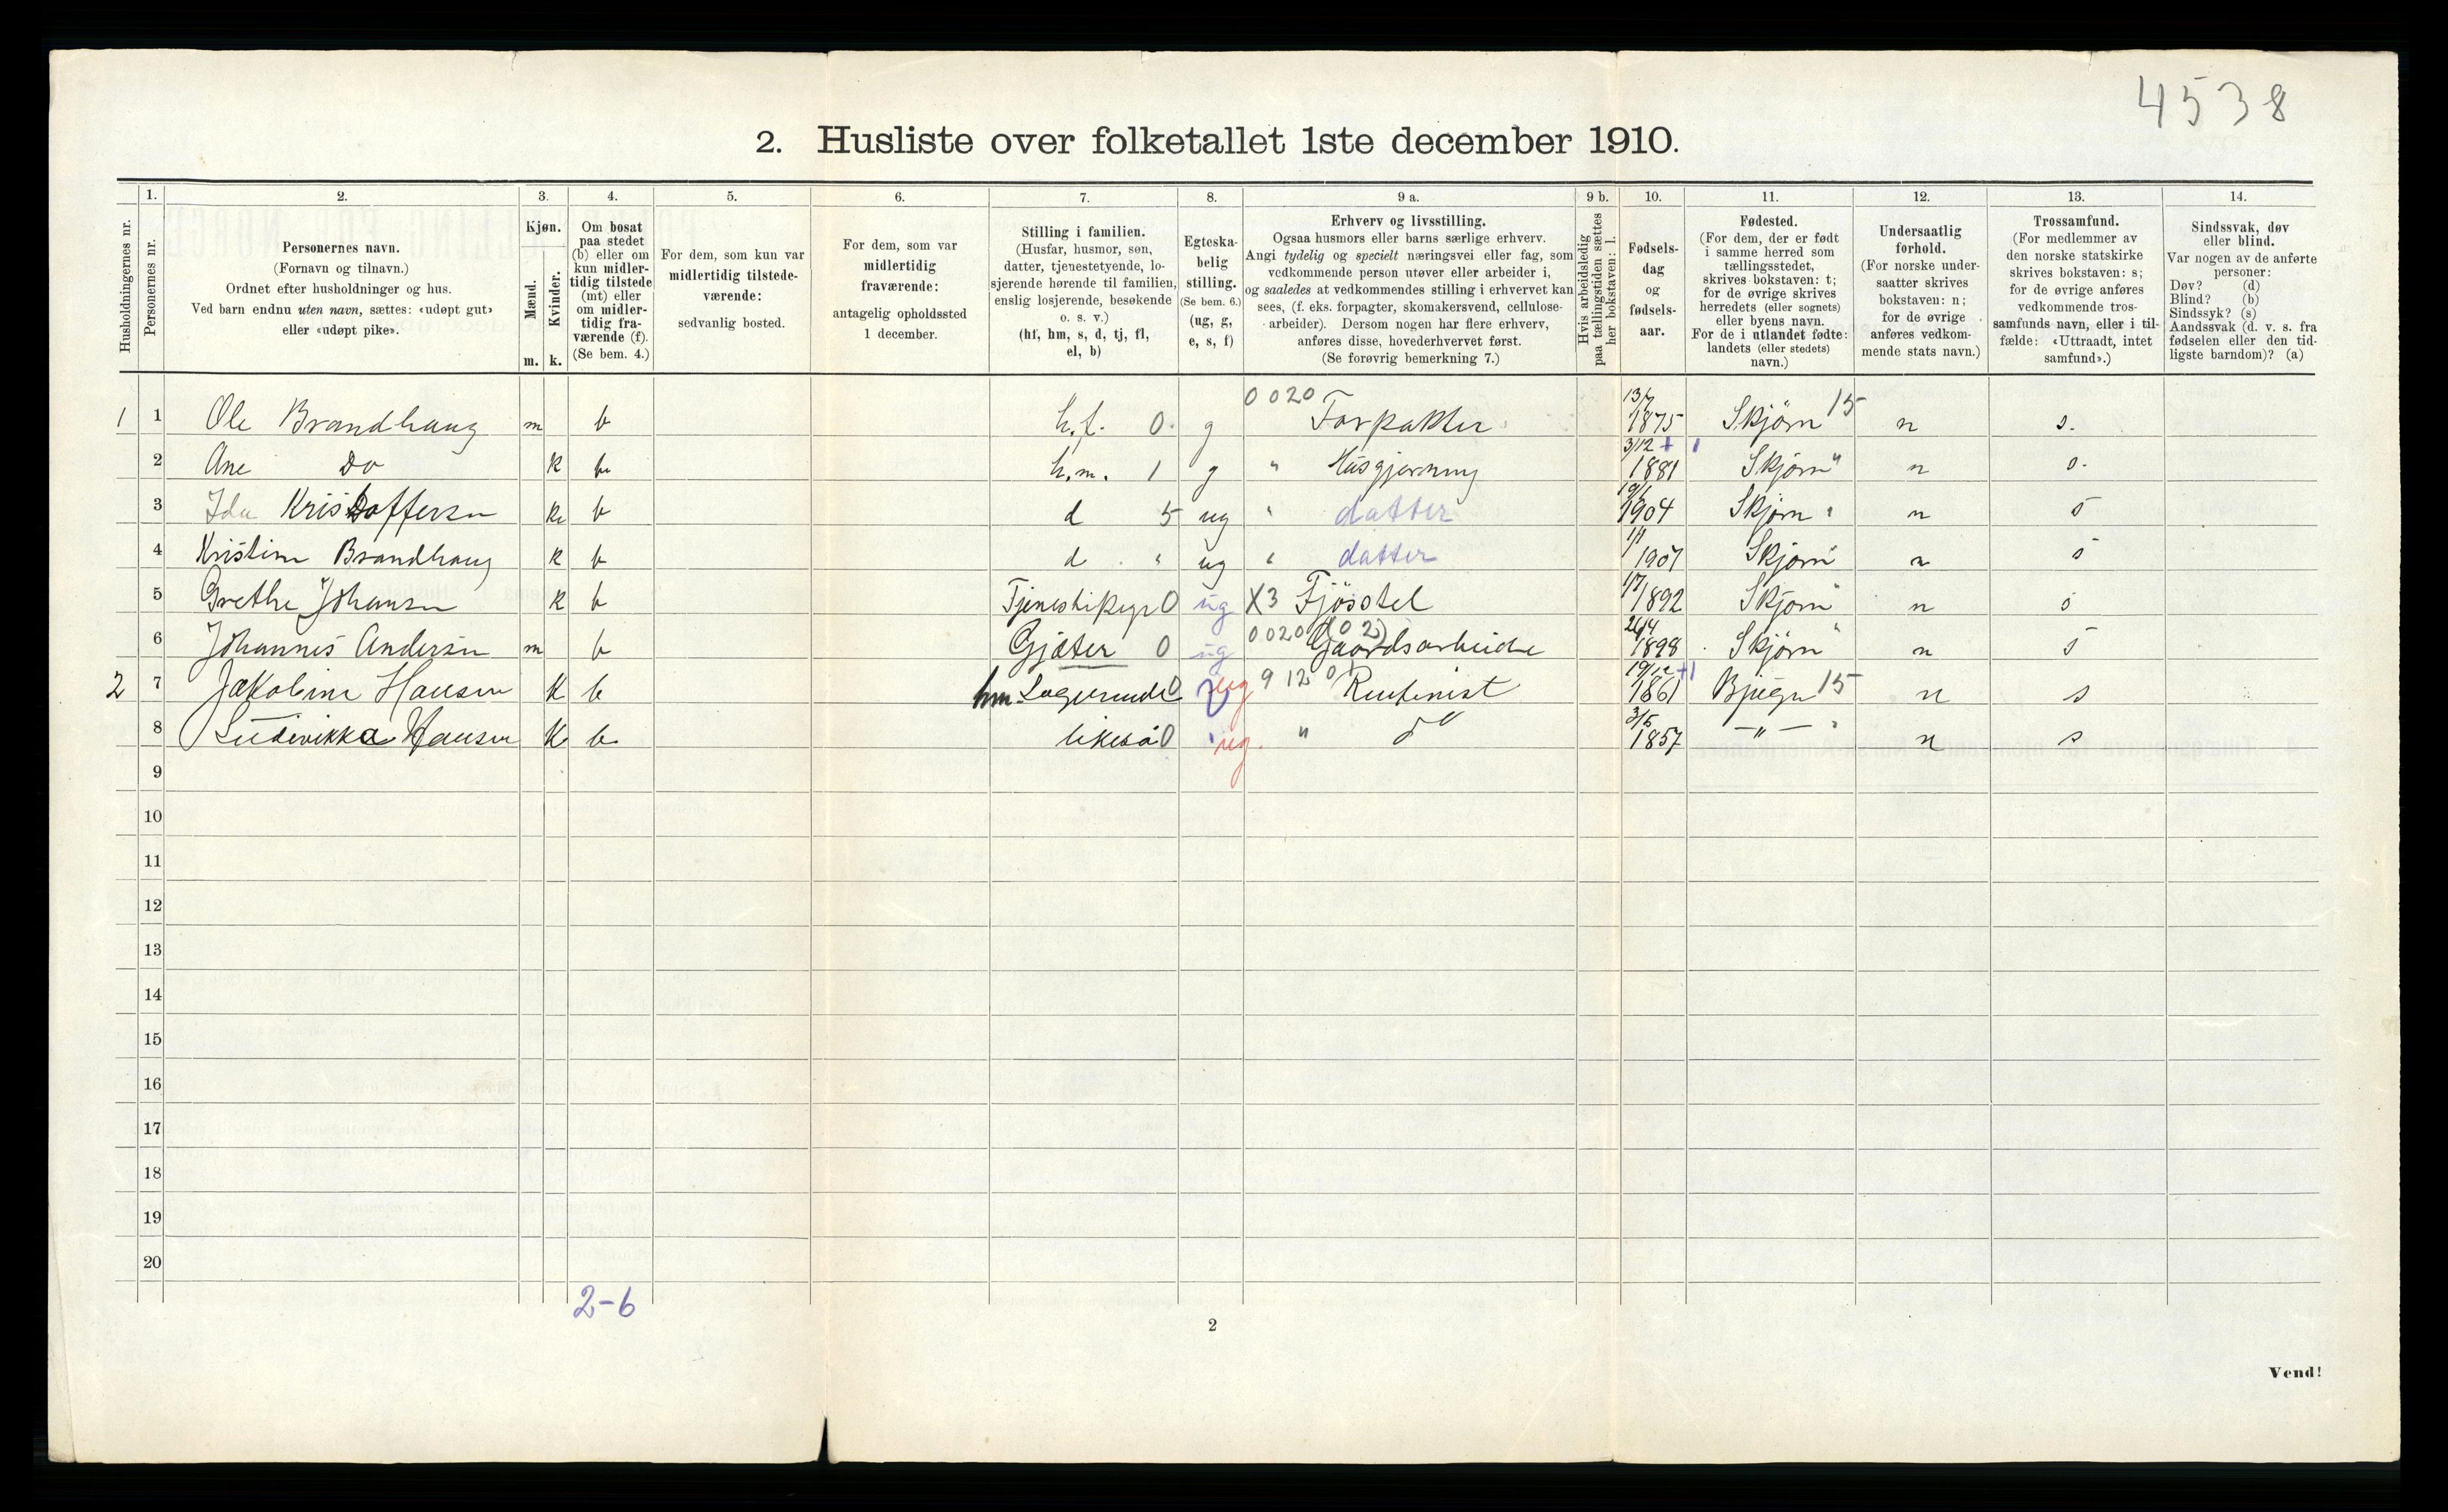 4538
2. Husliste over folketallet 1ste december 1910.
Husholdningernes nr.
1.
Personernes nr.
2.
Personernes navn.
(Fornavn og tilnavn.)
Ordnet efter husholdninger og hus.
Ved barn endnu uten navn, sættes: «udøpt gut»
eller «udøpt pike».
3.
Kjøn.
Mænd.
Kvinder.
m. k.
4.
Om bosat
paa stedet
(b) eller om
kun midler-
tidig tilstede
(mt) eller
om midler-
tidig fra-
værende (f).
(Se bem. 4.)
5.
For dem, som kun var
midlertidig tilstede-
værende:
sedvanlig bosted.
6.
For dem, som var
midlertidig
fraværende:
antagelig opholdssted
1 december.
7.
Stilling i familien.
(Husfar, husmor, søn,
datter, tjenestetyende, lo-
sjerende hørende til familien,
enslig losjerende, besøkende
o. s. v.)
(hf, hm, s, d, tj, fl,
el, b)
8.
Egteska-
belig
stilling.
(Se bem. 6.)
(ug, g,
e, s, f)
9 a.
Erhverv og livsstilling.
Ogsaa husmors eller barns særlige erhverv.
Angi tydelig og specielt næringsvei eller fag, som
vedkommende person utøver eller arbeider i,
og saaledes at vedkommendes stilling i erhvervet kan
sees, (f. eks. forpagter, skomakersvend, cellulose-
arbeider). Dersom nogen har flere erhverv,
anføres disse, hovederhvervet først.
(Se forøvrig bemerkning 7.)
9 b.
Hvis arbeidsledig
paa tællingstiden sættes
her bokstaven: l.
10.
Fødsels-
dag
og
fødsels-
aar.
11.
Fødested.
(For dem, der er født
i samme herred som
tællingsstedet,
skrives bokstaven: t;
for de øvrige skrives
herredets (eller sognets)
eller byens navn.
For de i utlandet fødte:
landets (eller stedets)
navn.)
12.
Undersaatlig
forhold.
(For norske under-
saatter skrives
bokstaven: n;
for de øvrige
anføres vedkom-
mende stats navn.)
13.
Trossamfund.
(For medlemmer av
den norske statskirke
skrives bokstaven: s;
for de øvrige anføres
vedkommende tros-
samfunds navn, eller i til-
fælde: «Uttraadt, intet
samfund».)
14.
Sindssvak, døv
eller blind.
Var nogen av de anførte
personer:
Døv? (d)
Blind? (b)
Sindssyk? (s)
Aandssvak (d. v. s. fra
fødselen eller den tid-
ligste barndom)? (a)
1 1 Ole Brandhaug m b h.f. 0. g 0020 Forpakter 13/7 1875 Skjörn 15 n s.
2 Ane Do k b h.m. 1 g " Husgjerning 3/12 + 1 1881 Skjörn " n s.
3 Ida Kristoffersen k b d 5 ug " datter 1904 Skjörn " n s
4 Kristine Brandhaug k b d " ug " datter 1907 Skjörn " n s
5 Grethe Johansen k b Tjenestepige 0 ug X3 Fjösstel 1/7 1892 Skjörn " n s
6 Johannes Andersen m b Gjæter 0 ug 0020 (02) Gaardsarbeide 26/4 1898 Skjörn " n s
2 7 Jakobine Hansen k b hm. Logerende 0 ug 9 12 0 Rentenist 19/12 +1 1861 Bjugn 15 n s
8 Ludivikka Hansen k b likeså 0 ug. " do 3/5 1857 — " — " n s
9
10
11
12
13
14
15
16
17
18
19
20
2-6
2
Vend!